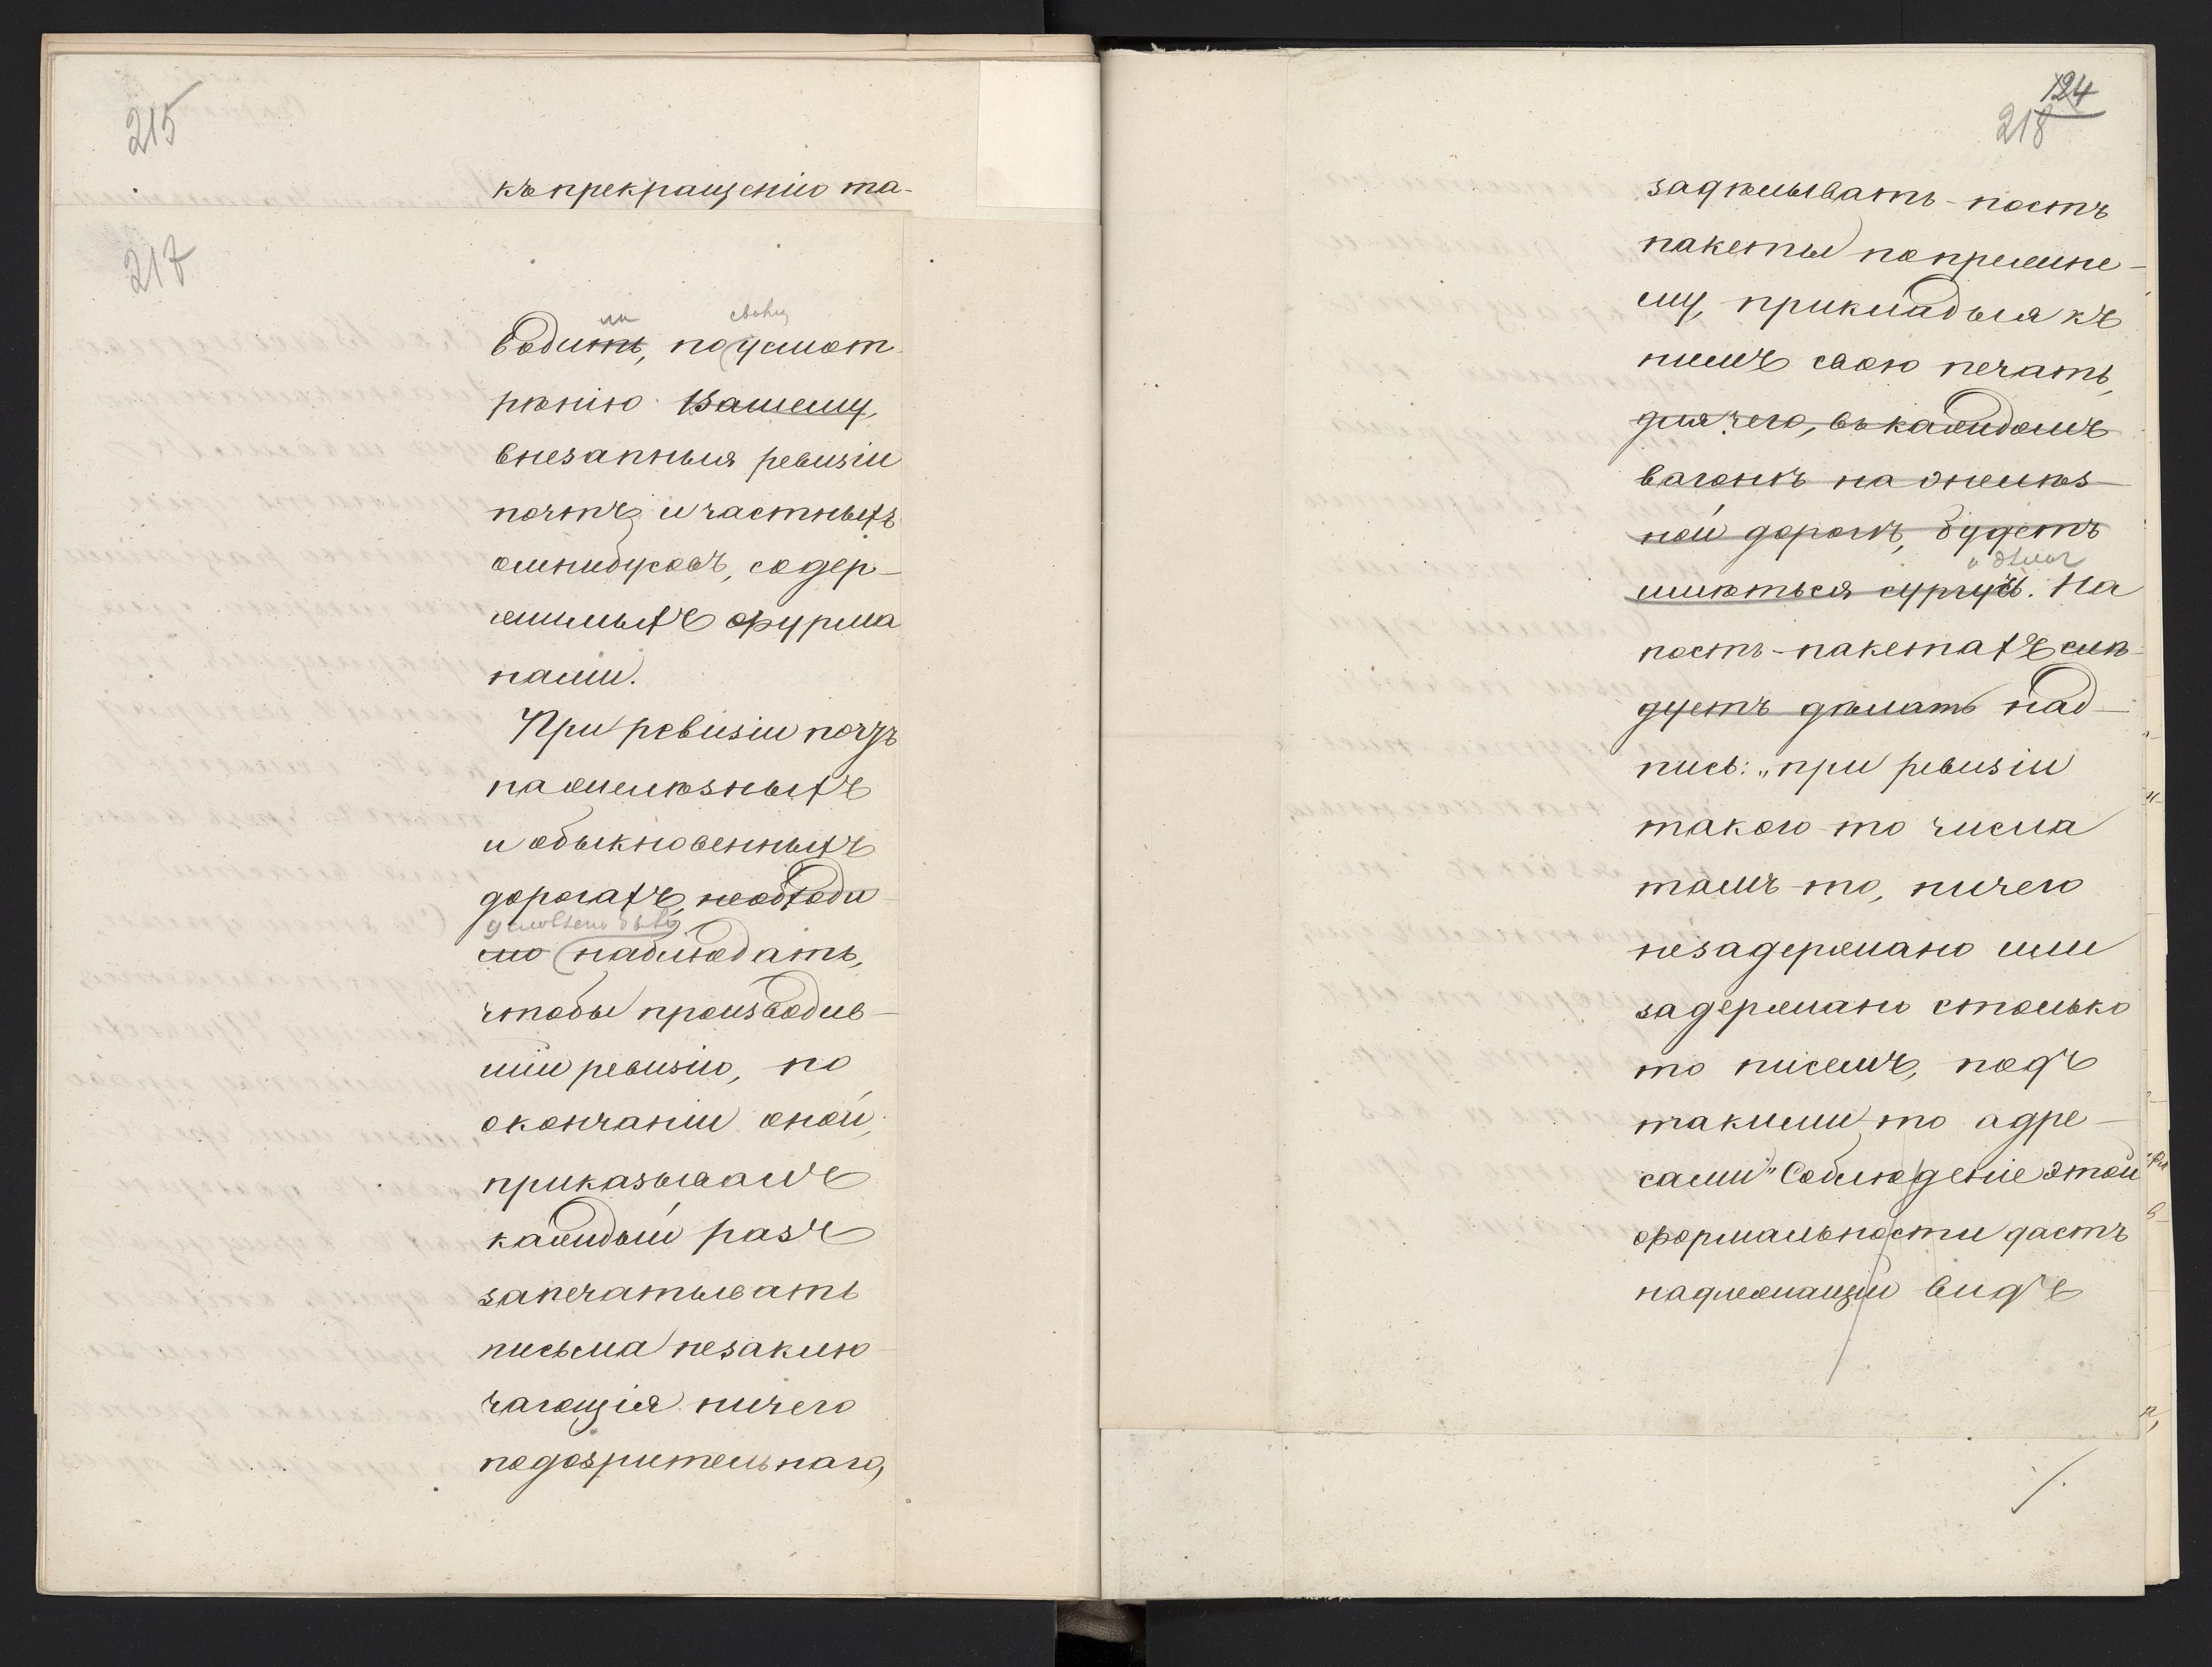 215
къ прекращенію та-
217
ли своему
водить, по усмот
рѣнію Вашему,
внезапныя ревизіи
почтъ и частныхъ
омнибусовъ, содер-
жимыхъ фурма
нами.
При ревизіи почтъ
на желѣзныхъ
и обыкновенныхъ
дорогахъ, необходи
мо наблюдать,
чтобы производив-
шій ревизію, по
окончаніи оной,
приказывалъ
каждый разъ
запечатывать
письма незаклю
чающія ничего
подозрительнаго,
124
218
задѣлывать постъ
пакеты по прежне-
му, прикладывая къ
нимъ свою печать,
для чего, въ каждомъ
вагонѣ на желѣз-
ной дорогѣ, будетъ
имѣться сургучъ. На
постъ-пакетахъ слѣ-
дуетъ дѣлать над-
пись: „при ревизіи
такого-то числа
тамъ-то, ничего
незадержано или
задержано столько
то писемъ, подъ
такими то адре-
сами" Соблюденіе этой
формальности дастъ
надлежащій видъ